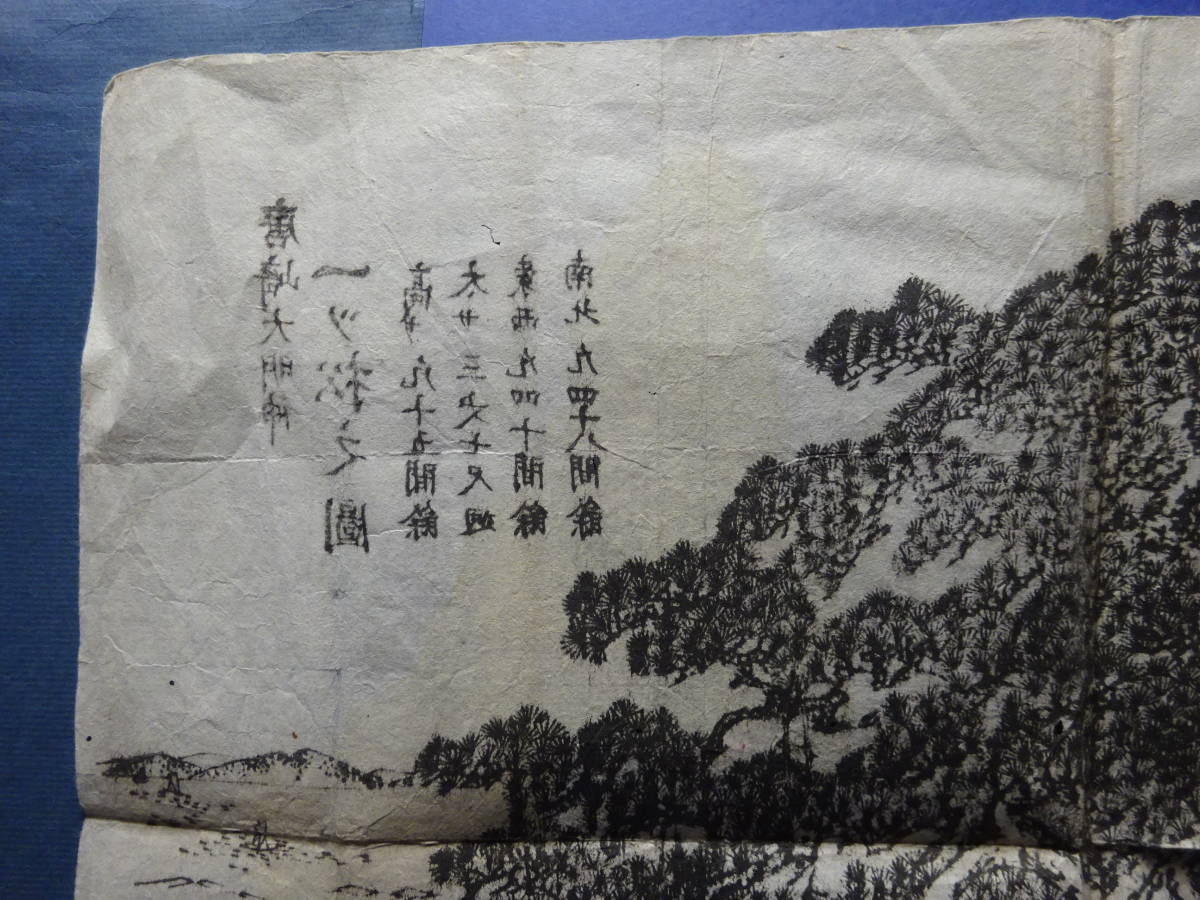 唐崎大明神
一ツ松之圖
高サ凡十五間餘
太サ三丈七尺廻
東西凡四十間餘
南北凡四十八間餘